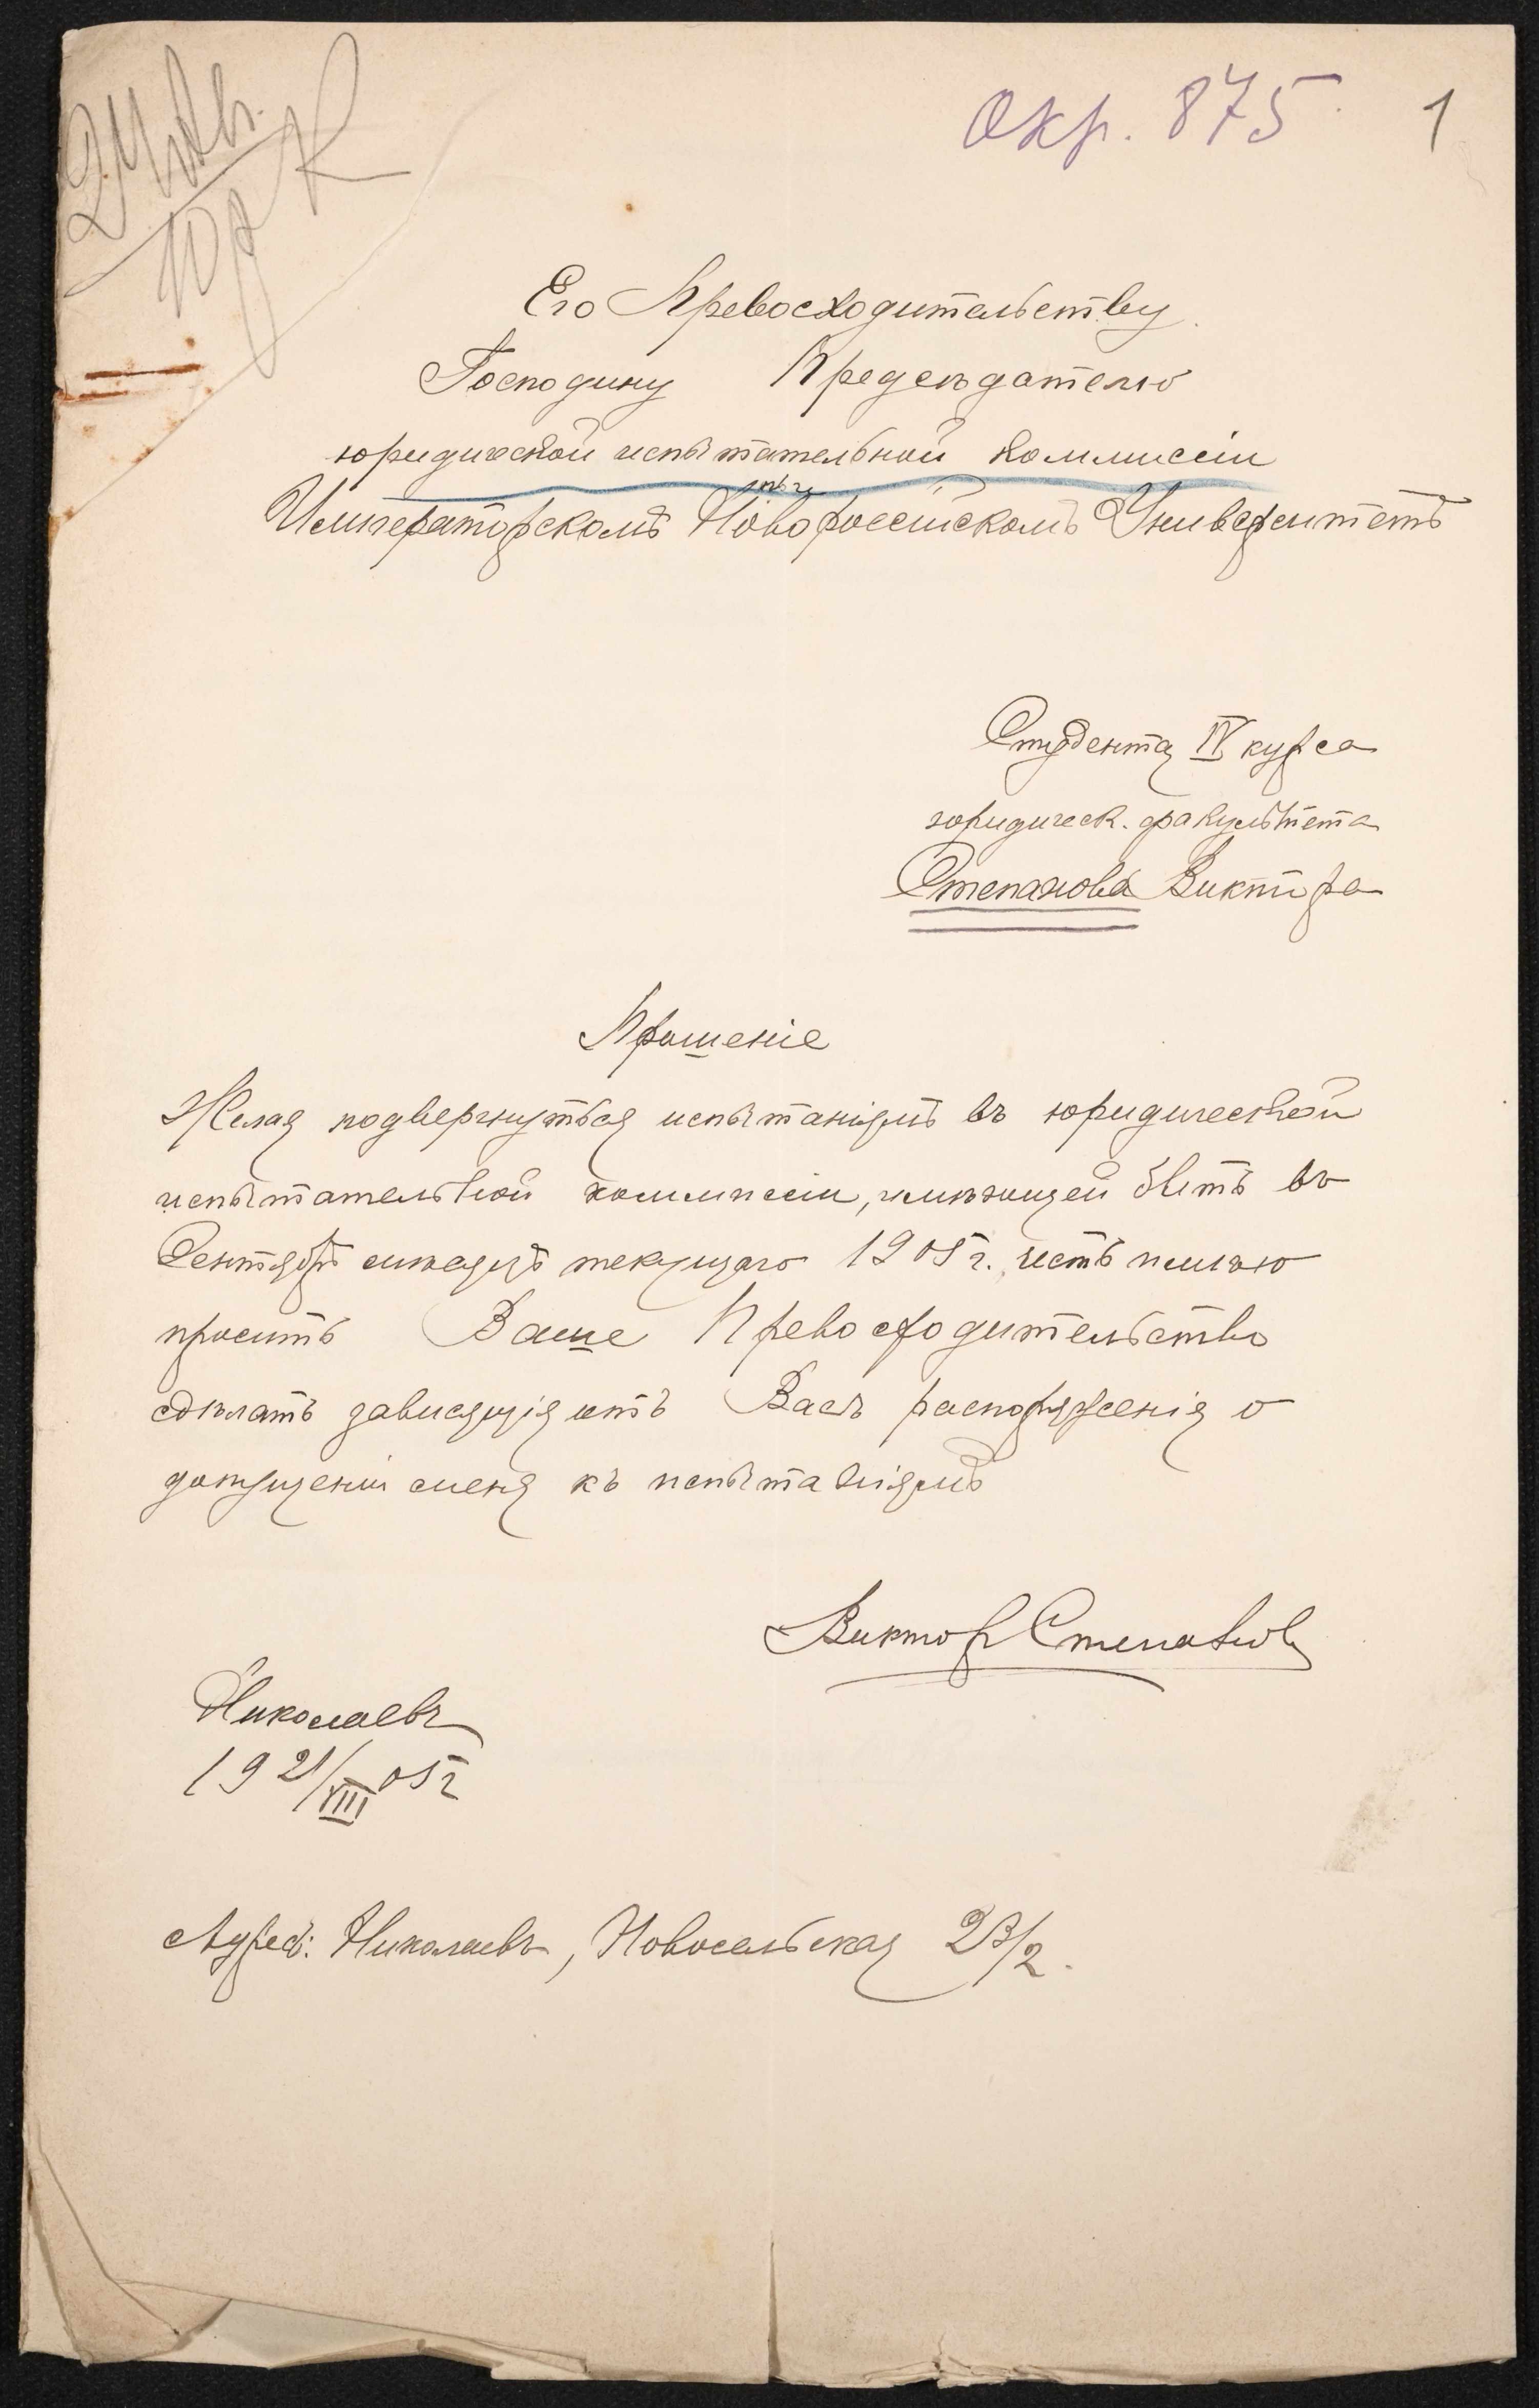 24 Ав.
Окр. 875 1
Его Превосходительству
Господину Предсѣдателю
юридической испытательной коммиссіи
при
Императорскомъ Новороссійскомъ Университетѣ
Студента IV курса
юридическ. факультета
Степанова Виктора
Прошеніе
Желая подвергнуться испытаніямъ въ юридической
испытательной коммиссіи, имѣющей быть въ
Сентябрѣ мѣсяцѣ текущаго 1905 г. честь имѣю
просить Ваше Превосходительство
сдѣлать зависящія отъ Васъ распоряженія о
допущеніи меня къ испытаніямъ
Виктор Степанов
Николаевъ
19 21/VIII 05 г
Адресъ: Николаевъ, Новосельская 23/2.